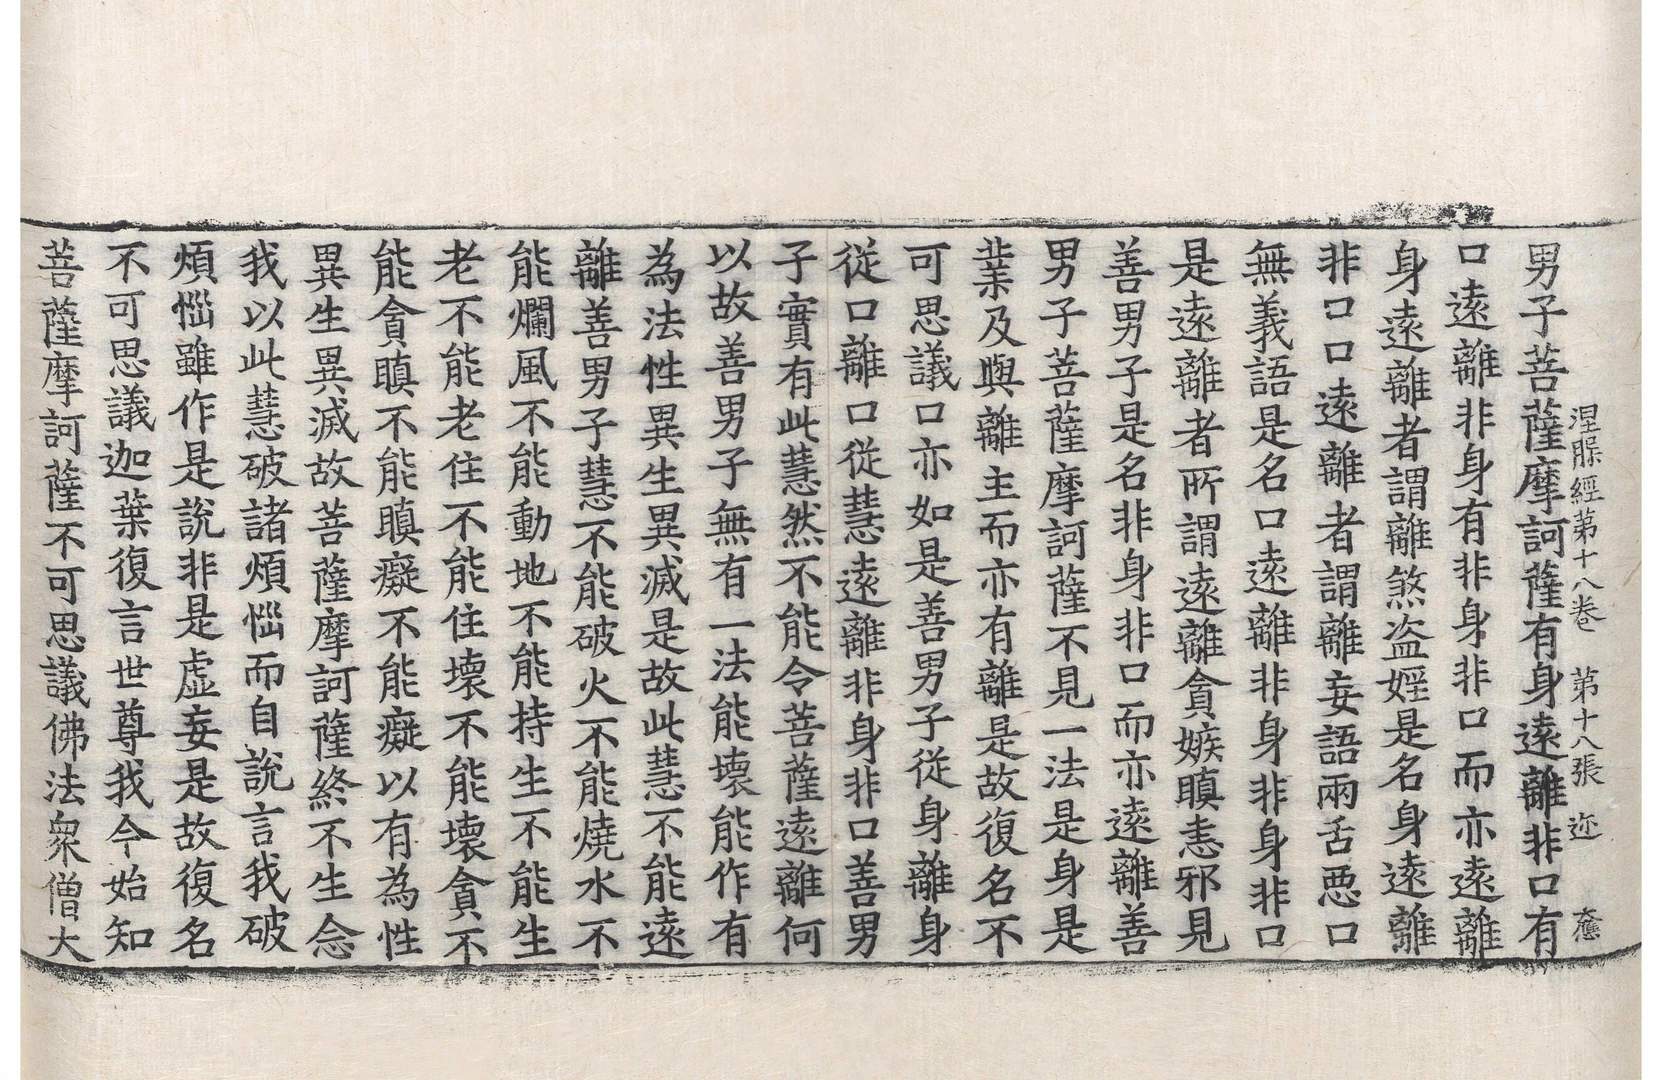 涅槃經第十八卷 第十八張 迩
男子菩薩摩訶薩有身遠離非口有
口遠離非身有非身非口而亦遠離
身遠離者謂離煞盗婬是名身遠離
非口口遠離者謂離妄語兩舌惡口
無義語是名口遠離非身非身非口
是遠離者所謂遠離貪嫉瞋恚邪見
善男子是名非身非口而亦遠離善
男子菩薩摩訶薩不見一法是身是
業及與離主而亦有離是故復名不
可思議口亦如是善男子從身離身
從口離口從慧遠離非身非口善男
子實有此慧然不能令菩薩遠離何
以故善男子無有一法能壞能作有
為法性異生異滅是故此慧不能遠
離善男子慧不能破火不能燒水不
能爛風不能動地不能持生不能生
老不能老住不能住壞不能壞貪不
能貪瞋不能瞋癡不能癡以有為性
異生異滅故菩薩摩訶薩終不生念
我以此慧破諸煩惱而自說言我破
煩惱雖作是說非是虛妄是故復名
不可思議迦葉復言世尊我今始知
菩薩摩訶薩不可思議佛法衆僧大